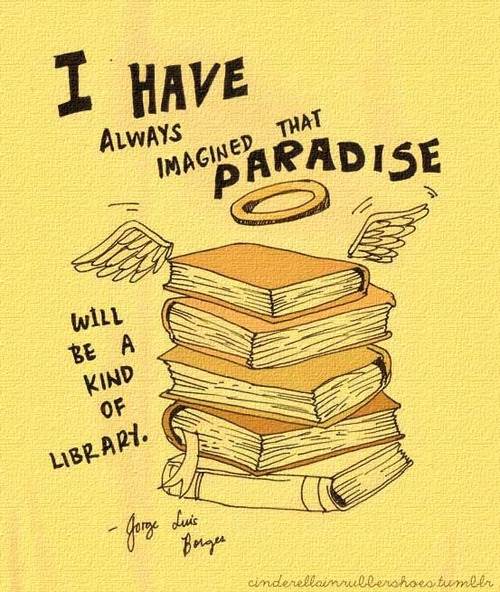 I HAVE
ALWAYS
IMAGINED THAT
PARADISE
WILL
BE A
KIND
OF
LIBRARY.
- Jorge Luis
Borges
cinderellainrubbershoes.tumblr